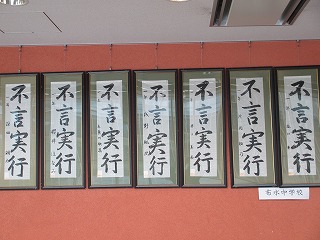 不言実行
不言実行
不言実行
不言実行
不言実行
不言実行
不言実行
布水中学校